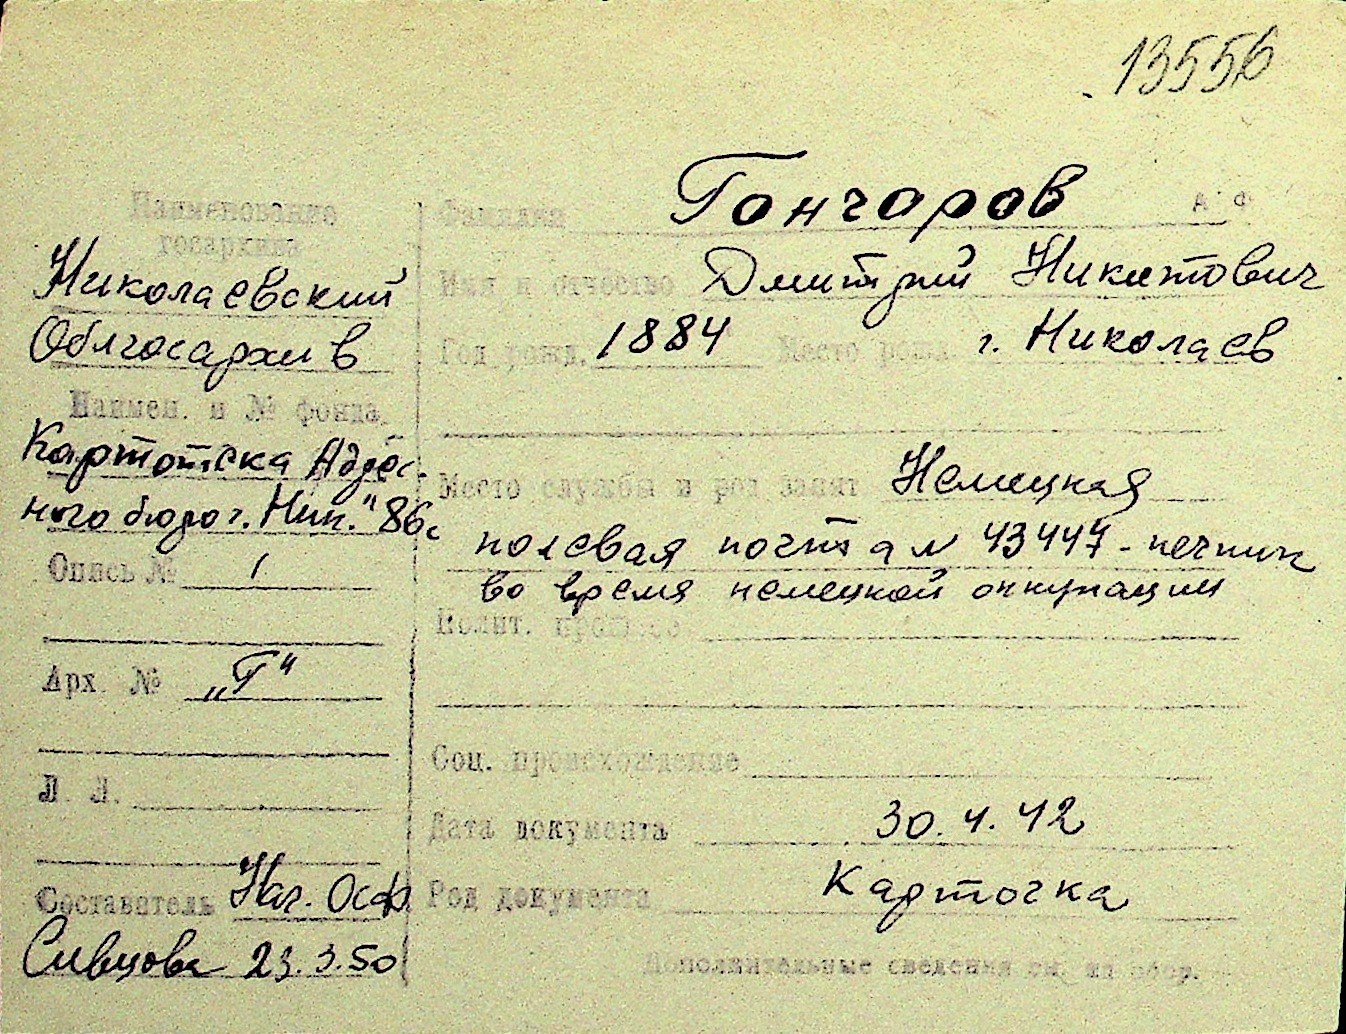 13556
Наименование
госархива
Николаевский
Облгосархив
Наимен. и № фонда
Картотека Адрес-
ного бюро г. Ник. "86с
Опись № 1
Арх. № „Г“
Л. Л.
Составитель Нач. Осф
Сивцова 23.3.50
Фамилия Гончаров А Ф
Имя и отчество Дмитрий Никитович
Год рожд. 1884 Место рожд. г. Николаев
Место службы и род занят Немецкая
полевая почта № 43447 - печник
во время немецкой оккупации
Полит.
Соц. происхождение
Дата документа 30.4.42
Род документа Карточка
Дополнительные сведения см. на обор.